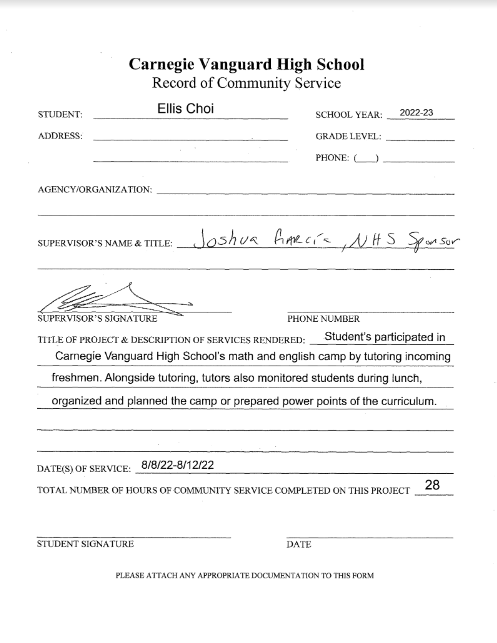 Carnegie Vanguard High School
Record of Community Service
STUDENT: Ellis Choi SCHOOL YEAR: 2022-23
ADDRESS: GRADE LEVEL:
PHONE: ( )
AGENCY/ORGANIZATION:
SUPERVISOR'S NAME & TITLE: Joshua Garcia, NHS Sponsor
SUPERVISOR'S SIGNATURE PHONE NUMBER
TITLE OF PROJECT & DESCRIPTION OF SERVICES RENDERED: Student's participated in
Carnegie Vanguard High School's math and english camp by tutoring incoming
freshmen. Alongside tutoring, tutors also monitored students during lunch,
organized and planned the camp or prepared power points of the curriculum.
DATE(S) OF SERVICE: 8/8/22-8/12/22
TOTAL NUMBER OF HOURS OF COMMUNITY SERVICE COMPLETED ON THIS PROJECT 28
STUDENT SIGNATURE DATE
PLEASE ATTACH ANY APPROPRIATE DOCUMENTATION TO THIS FORM